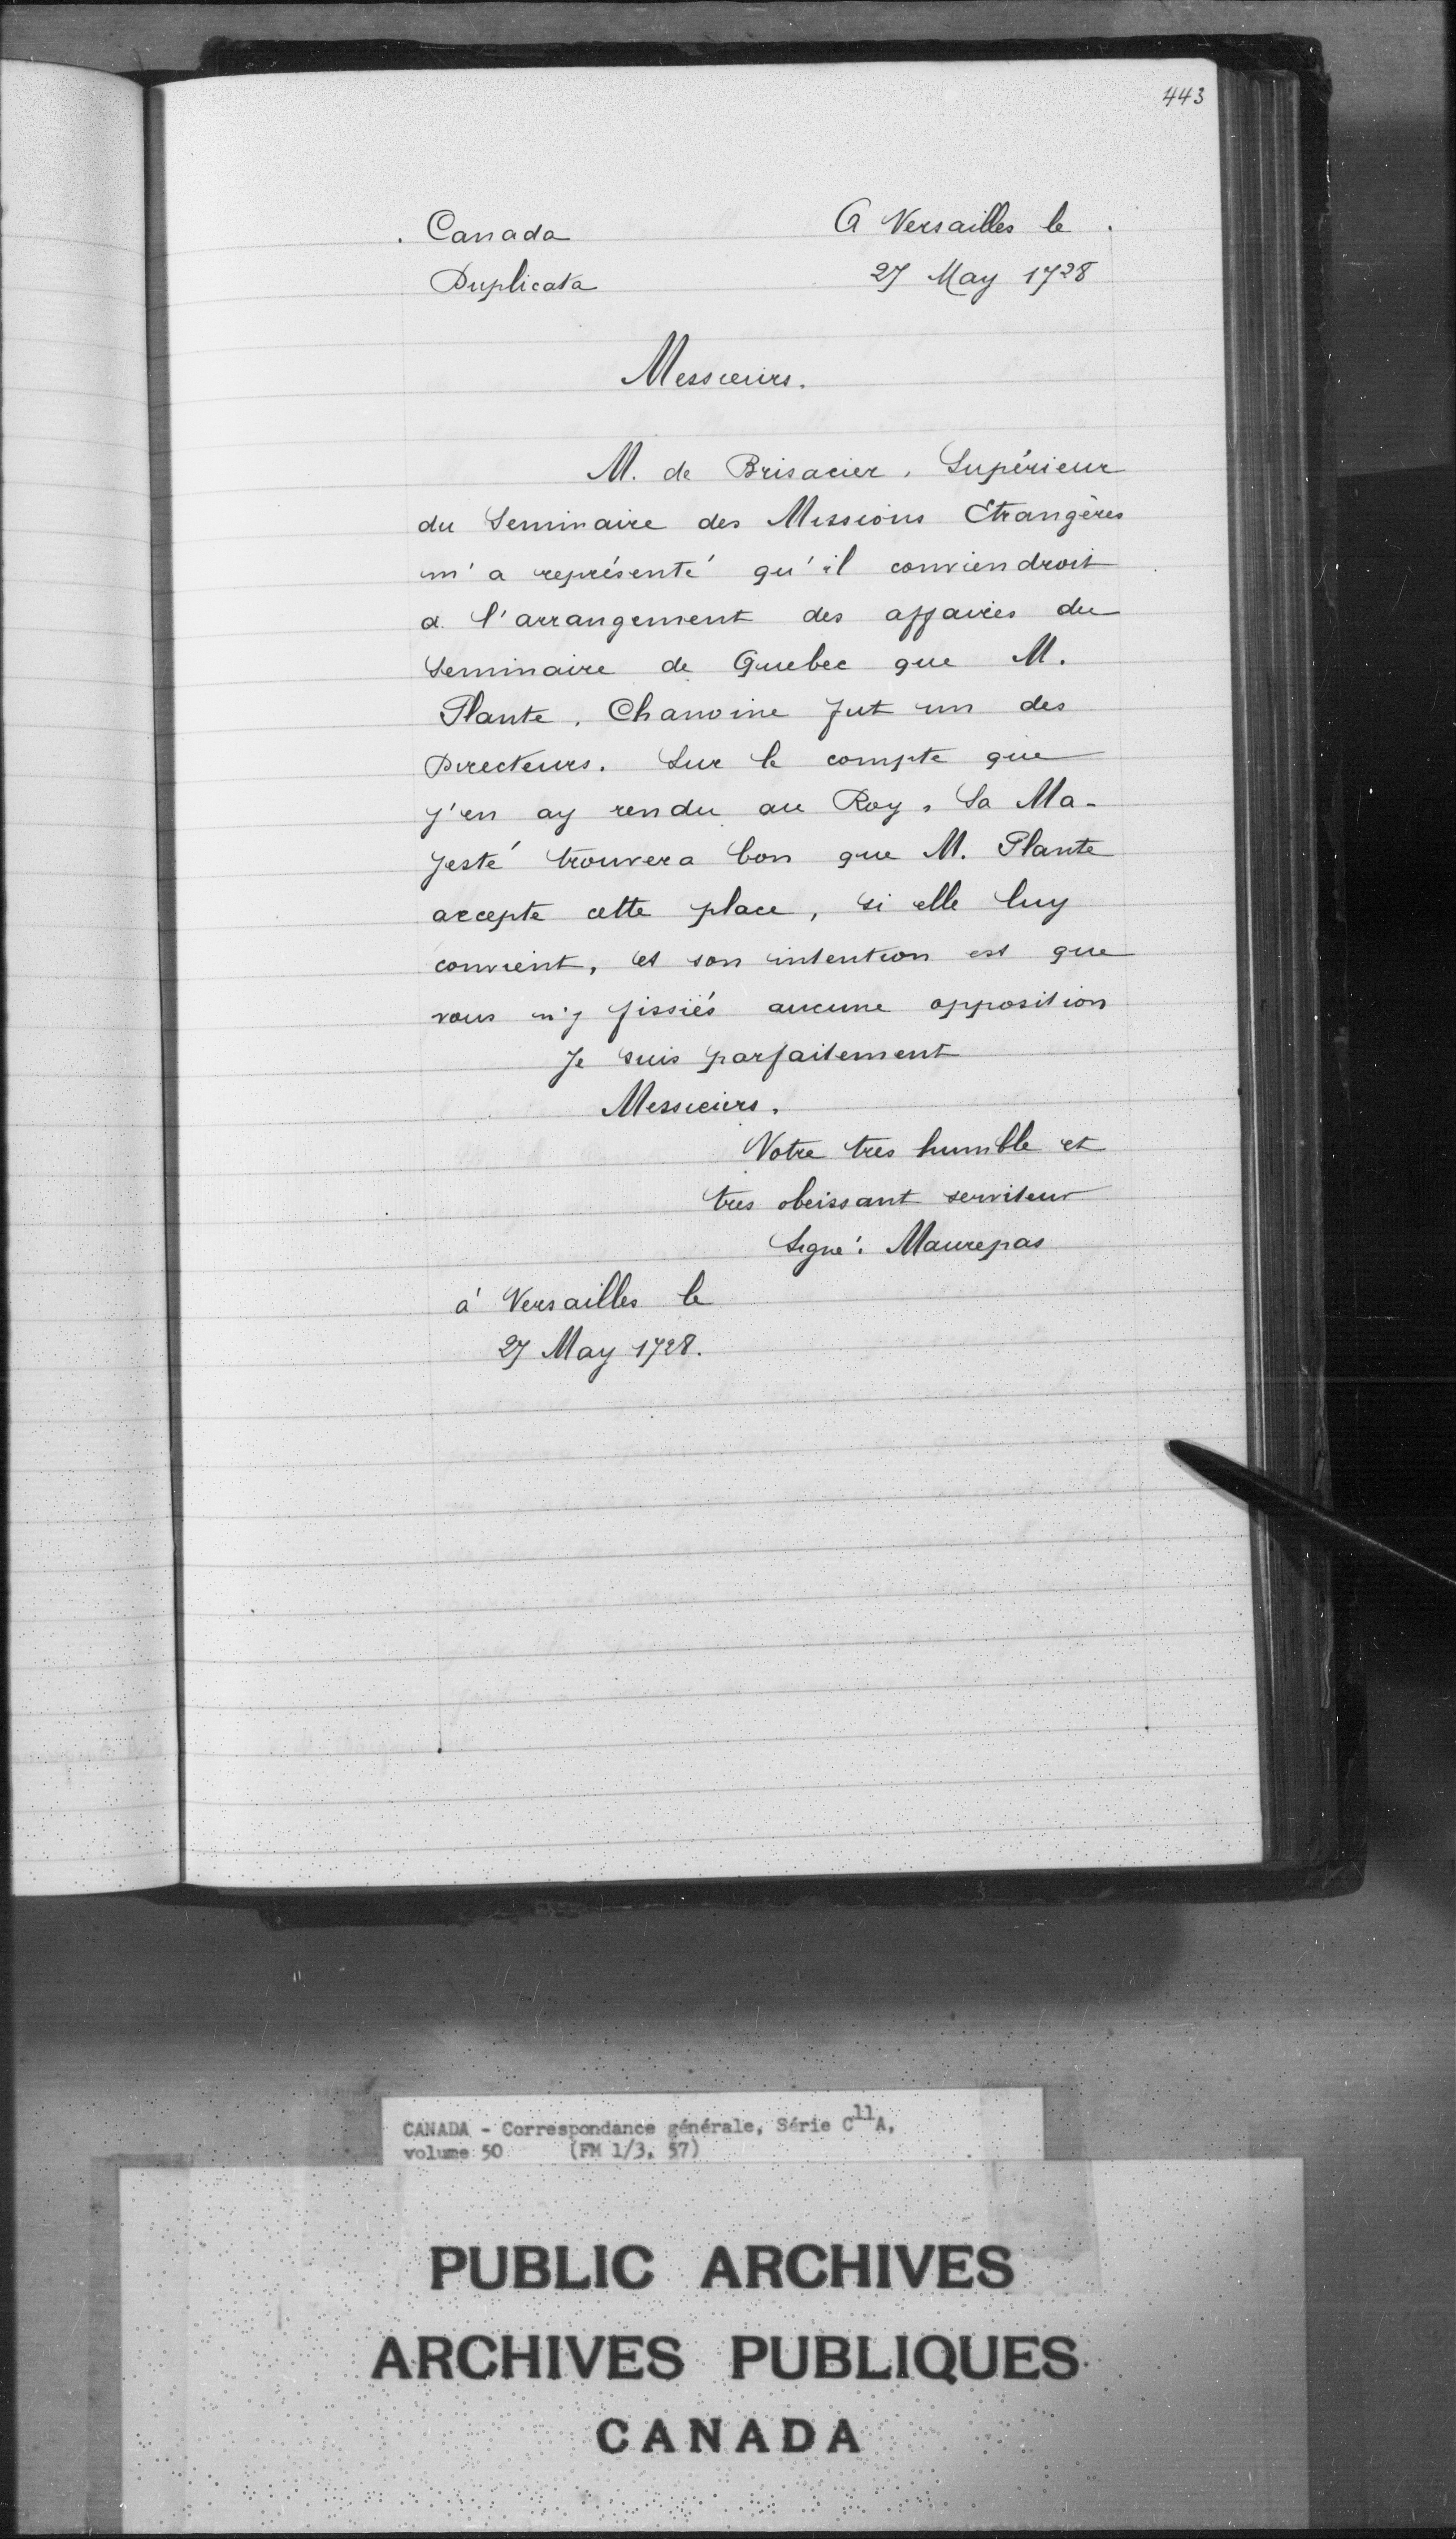 443
Canada
A Versailles le
Duplicata
27 May 1728
Messieurs.
M. de Brisacier, Supérieur
du Seminaire des Missions Etrangères
m'a représenté qu'il conviendroit
a l'arrangement des affaires du
Seminaire de Quebec que M.
Plante, Chanoine fut un des
Directeurs. Sur le compte que
j'en ay rendu au Roy, Sa Ma-
jesté trouvera bon que M. Plante
accepte cette place, si elle luy
convient, et son intention est que
vous n'y fissiés aucune opposition
Je suis parfaitement
Messieurs,
Votre tres humble et
tres obeissant serviteur
Signé: Maurepas
à Versailles le
27 May 1728.
CANADA - Correspondance générale, Série C11A,
volume 50 (FM 1/3, 57)
PUBLIC ARCHIVES
ARCHIVES PUBLIQUES
CANADA